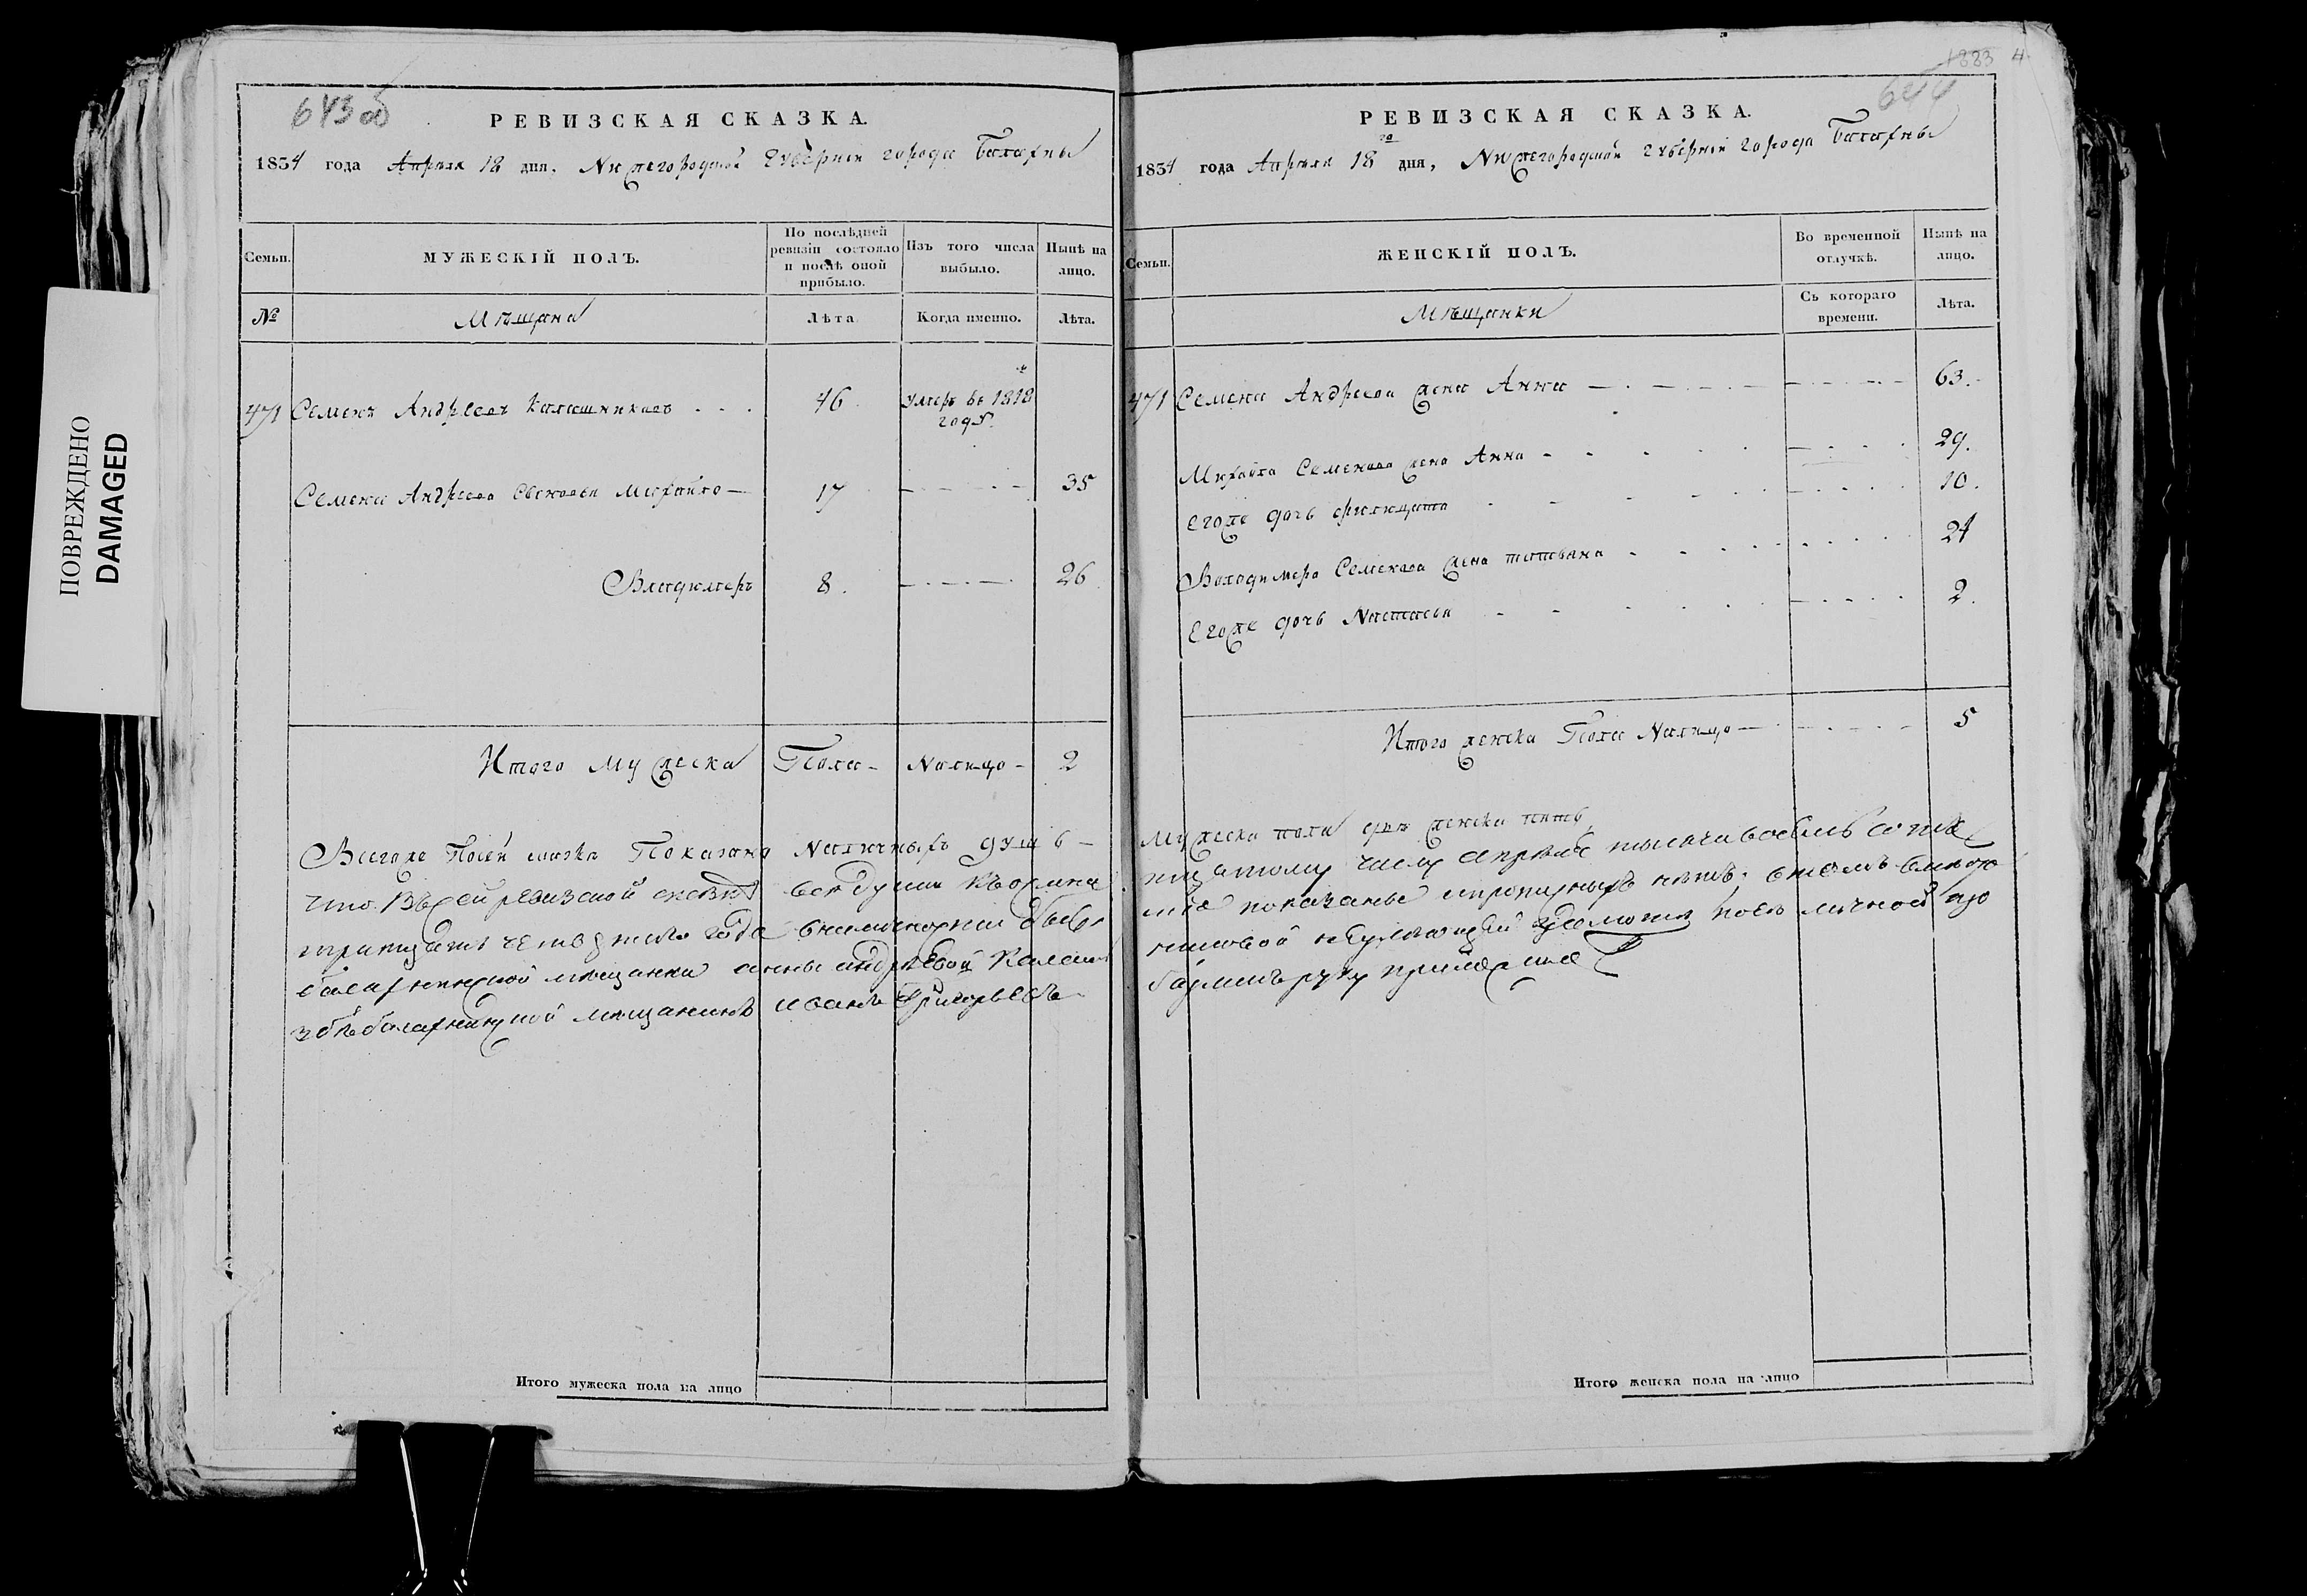 ПОВРЕЖДЕНО
DAMAGED
643 об
РЕВИЗСКАЯ СКАЗКА.
1834 года Апреля 18 дня, Нижегородской Губернии города Балахны
Семьи.
МУЖЕСКІЙ ПОЛЪ.
По послѣдней ревизіи состояло и послѣ оной прибыло.
Изъ того числа выбыло.
Нынѣ на лицо.
№
Мѣщана
Лѣта
Когда именно.
Лѣта.
471 Семенъ Андреевъ Калашниковъ . . . 46 умеръ въ 1818 годѣ.
Семена Андреева сыновья Михайло — 17 — 35
Владимеръ 8. — 26
Итого мужеска Пола - Налицо - 2
Всегоже Посей сказке Показано Наличныхъ душъ -
что Въ сей ревизской сказке все души
тритцать четвертаго года
балахнинской мещанки анны андреевой
балахнинской мещанинъ иванъ Григорьевъ
Итого мужеска пола на лицо
1883 4
644
РЕВИЗСКАЯ СКАЗКА.
1834 года Апреля 18го дня, Нижегородской губернии города Балахны
Семьи.
ЖЕНСКІЙ ПОЛЪ.
Во временной отлучкѣ.
Нынѣ на лицо.
Мѣщанки
Съ котораго времени.
Лѣта.
471 Семена Андреева жена Анна — 63.
Михайла Семенова жена Анна - 29.
Егоже дочь 10.
Володимера Семенова жена татьяна 24
Егоже дочь Настасья 2.
Итого женска Пола Налицо — 5
Мужеска пола два женска пять
числу апреля тысяча восемь сотъ
показаны и прописныхъ нетъ; в томъ
неумеющей грамоте поея личной
руку приложилъ
Итого женска пола на лицо